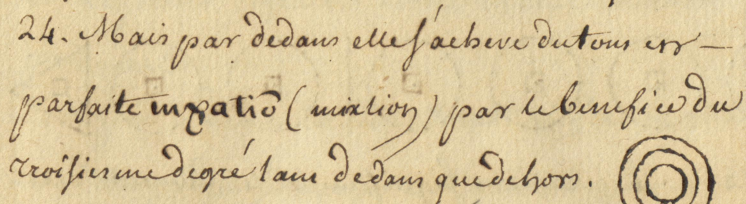 24. Mais par dedans elle s'acheve du tous en
parfaite mixatiō (mixtion) par le benefice du
troisiesme degré tant dedans que dehors.